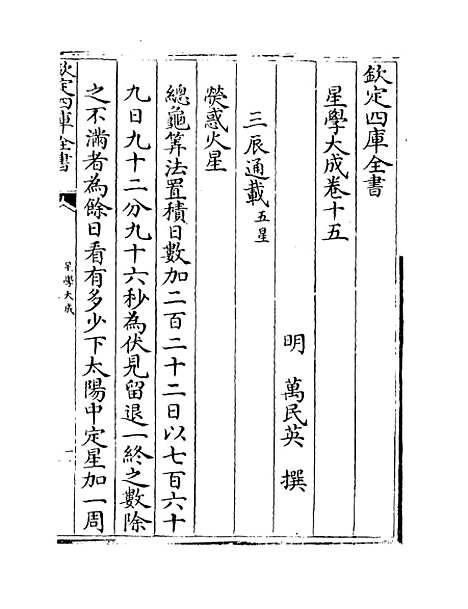 欽定四庫全書
星學大成卷十五
明 萬民英 撰
三辰通載五星
熒惑火星
總龜筭法置積日數加二百二十二日以七百六十
九日九十二分九十六秒為伏見留退一終之數除
之不滿者為餘日看有多少下太陽中定星加一周
欽定四庫全書
星學大成
一